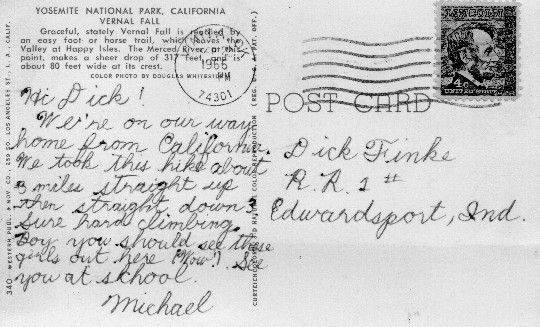 YOSEMITE NATIONAL PARK, CALIFORNIA
VERNAL FALL
Graceful, stately Vernal Fall is reached by
an easy foot or horse trail, which leaves the
Valley at Happy Isles. The Merced River, at this
point, makes a sheer drop of 317 feet and is
about 80 feet wide at its crest.
COLOR PHOTO BY DOUGLAS WHITESIDE
Hi Dick!
We're on our way
home from California.
We took this hike about
3 miles straight up
then straight down 3
Sure hard climbing.
Boy you should see those
girls out here (Wow!) See
you at school.
Michael
1966
PM
74301
4¢
UNITED STATES
POST CARD
Dick Finke
R.R. 1 #
Edwardsport, Ind.
340 - WESTERN PUBL. & NOV. CO., 259 SO. LOS ANGELES ST., L. A., CALIF.
COLOR REPRODUCTION (REG. U.S.A. PAT. OFF.)